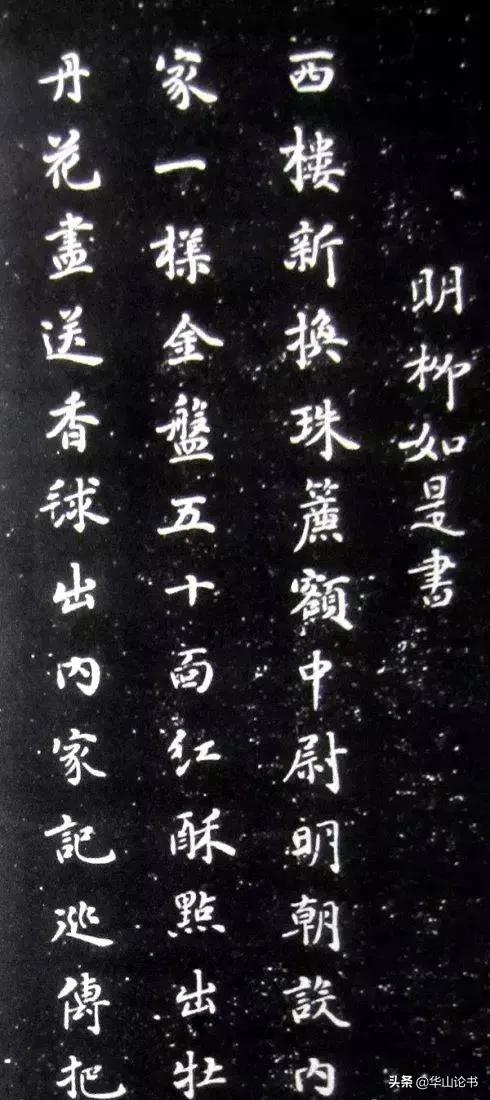 明柳如是書
西樓新換珠簾額中尉明朝設内
家一様金盤五十面紅酥點出牡
丹花盡送香毬出内家記巡傳把
头条 @华山论书